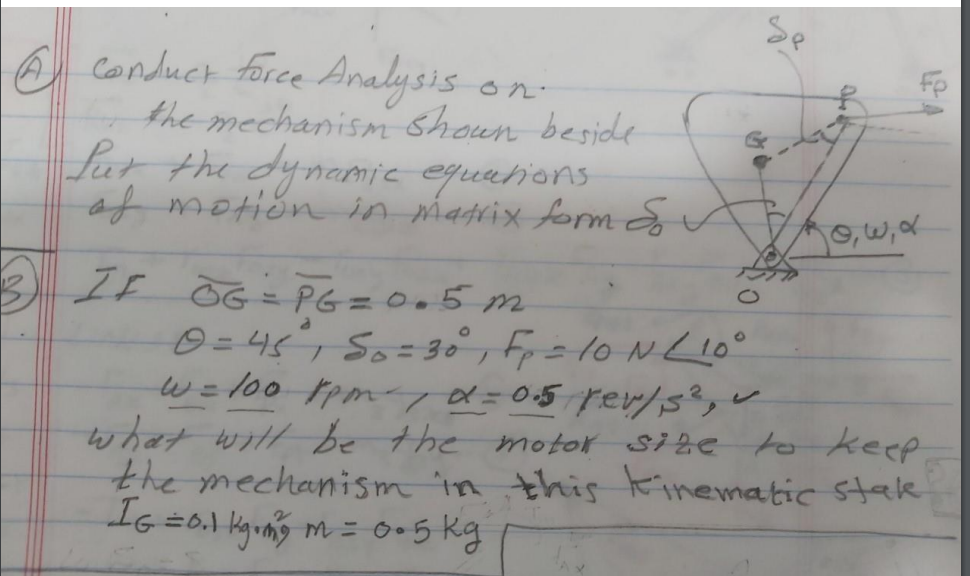 A conduct force Analysis on.
the mechanism shown beside
Put the dynamic equations
of motion in matrix form
δp
P
Fp
G
δo
θ, ω, α
O
B If OG = PG = 0.5 m
θ = 45°, δo = 30°, Fp = 10 N ∠10°
ω = 100 rpm, α = 0.5 rev/s², ✓
what will be the motor size to keep
the mechanism in this kinematic state
IG = 0.1 kg.m², m = 0.5 kg